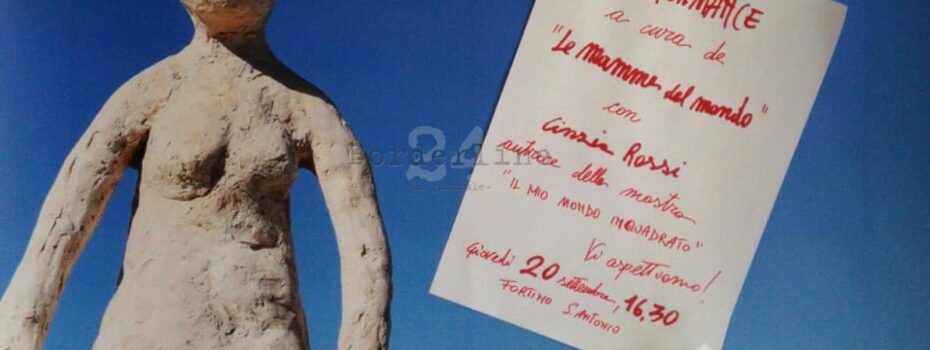 a cura de
"Le mamme del mondo"
con
Cinzia Rossi
autrice della mostra
"IL MIO MONDO INQUADRATO"
Vi aspettiamo!
Giovedì 20 settembre, 16,30
FORTINO
S. ANTONIO
Borderline
24